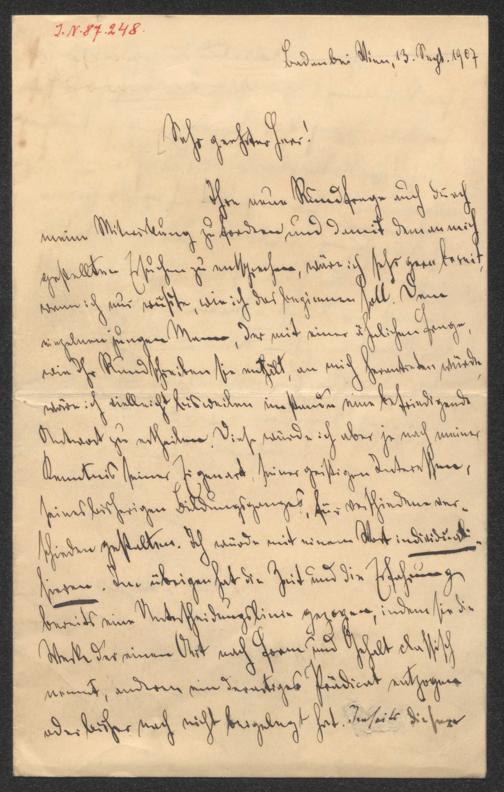 J.N. 87.248.
Baden bei Wien, 13. Sept. 1907
Sehr geehrter Herr!
Ihre neue Rundfrage auch durch
meine Mitwirkung zu fördern und damit dem an mich
gestellten Ersuchen zu entsprechen, wäre ich sehr gern bereit,
wenn ich nur wüßte, wie ich das beginnen soll. Dem
einzelnen jungen Mann, der mit einer ähnlichen Frage,
wie Ihr Rundschreiben sie enthält, an mich herantreten würde,
wäre ich vielleicht bisweilen imstande eine befriedigende
Antwort zu ertheilen. Diese würde ich aber je nach meiner
Kenntnis seiner Eigenart, seiner geistigen Interessen,
seines bisherigen Bildungsganges, für verschiedene ver-
schieden gestalten. Ich würde mit einem Wort individuali-
sieren. Im übrigen hat die Zeit und die Erfahrung
bereits eine Unterscheidungslinie gezogen, indem sie die
Werke der einen Art nach Form und Gehalt classisch
nennt, anderen ein derartiges Prädicat entzogen
oder bisher noch nicht beigelegt hat. Jenseits dieser